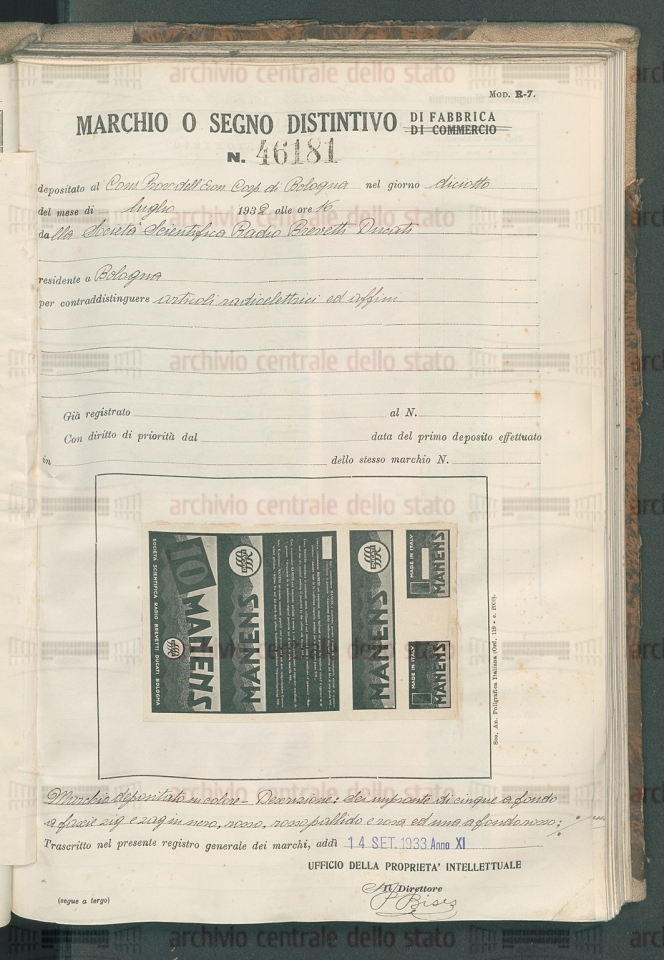 archivio centrale dello stato
MOD. R-7.
MARCHIO O SEGNO DISTINTIVO DI FABBRICA
DI COMMERCIO
N. 46181
depositato al Cons. Prov. dell'Econ. Corp. di Bologna nel giorno diciotto
del mese di luglio 1932 alle ore 16
dalla Società Scientifica Radio Brevetti Ducati
residente a Bologna
per contraddistinguere articoli radioelettrici ed affini
archivio centrale dello stato
Già registrato al N.
Con diritto di priorità dal data del primo deposito effettuato
in dello stesso marchio N.
archivio centrale dello stato
SOCIETÀ SCIENTIFICA RADIO BREVETTI DUCATI BOLOGNA
10
MANENS
MANENS
MANENS
MADE IN ITALY
MANENS
MADE IN ITALY
MANENS
Soc. An. Poligrafica Italiana (Ord. 119 - c. 200).
archivio centrale dello stato
archivio centrale dello stato
Marchio depositato in colore - Descrizione: Sei impronte di cinque a fondo
a fascie zig e zag in nero, rosso, rosso pallido e rosa ed una a fondo rosso;
Trascritto nel presente registro generale dei marchi, addì 14 SET. 1933 Anno XI
UFFICIO DELLA PROPRIETA' INTELLETTUALE
Il Direttore
(segue a tergo)
archivio centrale dello stato